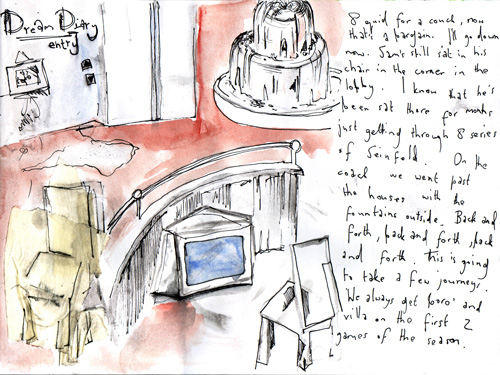 Dream Diary
entry
8 quid for a couch, now
that's a bargain. I'll go down
now. Sam's still sat in his
chair in the corner in the
lobby. I know that he's
been sat there for months
just getting through 8 series
of Seinfeld. On the
coach we went past
the houses with the
fountains outside. Back and
forth, back and forth, back
and forth. This is going
to take a few journeys.
We always get boro' and
villa on the first 2
games of the season.